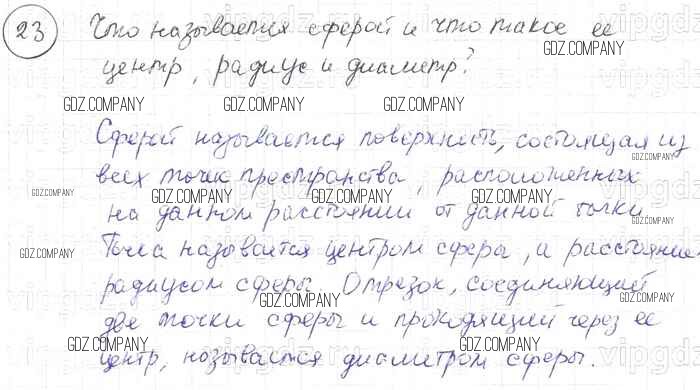 23 Что называется сферой и что такое ее
центр, радиус и диаметр?
GDZ.COMPANY
GDZ.COMPANY GDZ.COMPANY GDZ.COMPANY
Сферой называется поверхность, состоящая из
GDZ.COMPANY
всех точек пространства, расположенных
GDZ.COMPANY GDZ.COMPANY GDZ.COMPANY GDZ.COMPANY
на данном расстоянии от данной точки
GDZ.COMPANY
Точка называется центром сферы, а расстояние
GDZ.COMPANY
радиусом сферы. Отрезок, соединяющий
GDZ.COMPANY GDZ.COMPANY
две точки сферы и проходящий через ее
GDZ.COMPANY GDZ.COMPANY GDZ.COMPANY
центр, называется диаметром сферы.